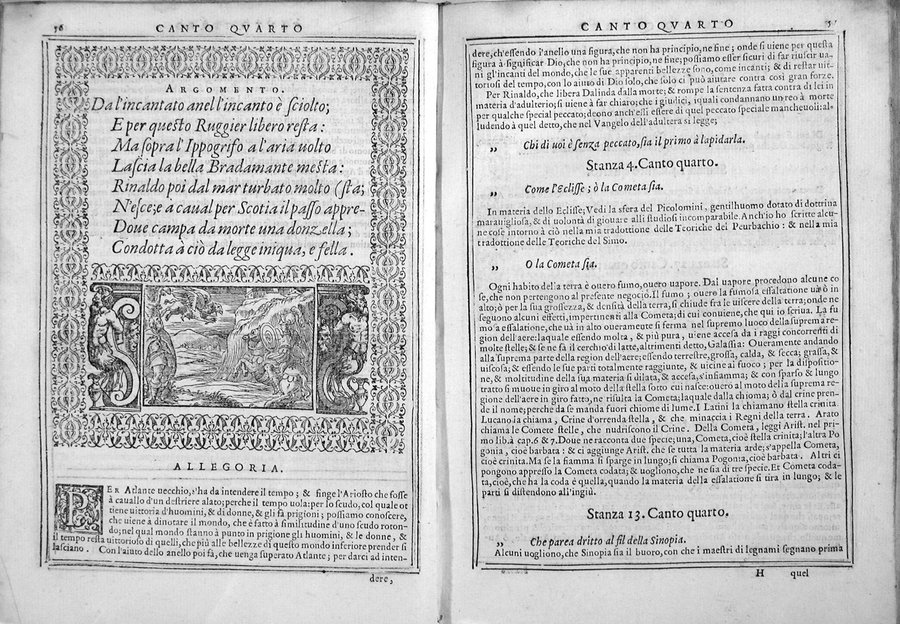 56 CANTO QVARTO
ARGOMENTO.
Da l'incantato anel l'incanto è sciolto;
E per questo Ruggier libero resta:
Ma sopra l'Ippogrifo a l'aria uolto
Lascia la bella Bradamante mesta:
Rinaldo poi dal mar turbato molto (sta;
N'esce; e a caual per Scotia il passo appre-
Doue campa da morte una donzella;
Condotta à ciò da legge iniqua, e fella.
ALLEGORIA.
PER Atlante uecchio, s'ha da intendere il tempo; & finge l'Ariosto che fosse
à cauallo d'un destriere alato; perche il tempo uola: per lo scudo, col quale ot
tiene uittoria d'huomini, & di donne, & gli fà prigioni; possiamo conoscere,
che uiene à dinotare il mondo, che è fatto à similitudine d'uno scudo roton-
do; nel qual mondo stanno à punto in prigione gli huomini, & le donne, &
il tempo resta uittorioso di quelli, che più alle bellezze di questo mondo inferiore prender si
lasciano. Con l'aiuto dello anello poi fà, che uenga superato Atlante; per darci ad inten-
dere,
CANTO QVARTO
dere, ch'essendo l'anello una figura, che non ha principio, ne fine; onde si uiene per questa
figura à significar Dio, che non ha principio, ne fine; possiamo esser sicuri di far riuscir ua-
ni gl'incanti del mondo, che le sue apparenti bellezze sono, come incanti; & di restar uit-
toriosi del tempo, con lo aiuto di Dio solo, che solo ci può aiutare contra cosi gran forze.
Per Rinaldo, che libera Dalinda dalla morte; & rompe la sentenza fatta contra di lei in
materia d'adulterio; si uiene à far chiaro; che i giudici, iquali condannano un reo à morte
per qualche special peccato; deono anch'essi esser di quel peccato speciale mancheuoli: al-
ludendo à quel detto, che nel Vangelo dell'adultera si legge;
„ Chi di uoi è senza peccato, sia il primo à lapidarla.
Stanza 4. Canto quarto.
„ Come l'Eclisse; ò la Cometa sia.
In materia dello Eclisse; Vedi la sfera del Picolomini, gentilhuomo dotato di dottrina
marauigliosa, & di uolontà di giouare alli studiosi incomparabile. Anch'io hò scritte alcu-
ne cose intorno à ciò nella mia tradottione delle Teoriche del Peurbachio: & nella mia
tradottione delle Teoriche del Simo.
„ O la Cometa sia.
Ogni habito della terra è ouero fumo, ouero uapore. Dal uapore procedono alcune co
se, che non pertengono al presente negocio. Il fumo; ouero la fumosa essaltatione uà in
alto; ò per la sua grossezza, & densità della terra, si chiude fra le uiscere della terra; onde ne
seguono alcuni effetti, impertinenti alla Cometa; di cui conuiene, che qui io scriua. La fu
mosa essalatione, che uà in alto oueramente si ferma nel supremo luoco della suprema re-
gion dell'aere: laquale essendo molta, & più pura, uiene accesa da i raggi concorrenti di
molte stelle; & se ne fà il cerchio di latte, altrimenti detto, Galassia: Oueramente andando
alla suprema parte della region dell'aere; essendo terrestre, grossa, calda, & secca; grassa, &
uiscosa; & essendo le sue parti totalmente raggiunte, & uicine al fuoco; per la dispositio-
ne, & moltitudine della sua materia si dilata, & accesa, s'infiamma; & con sparso & lungo
tratto si muoue in giro al moto della stella sotto cui nasce: ouero al moto della suprema re-
gione dell'aere in giro fatto, ne risulta la Cometa; laquale dalla chioma; ò dal crine pren-
de il nome; perche da se manda fuori chiome di lume. I Latini la chiamano stella crinita.
Lucano la chiama, Crine d'orrenda stella, & che minaccia i Regni della terra. Arato
chiama le Comete stelle, che nudriscono il Crine. Della Cometa, leggi Arist. nel pri-
mo lib. à cap. 6 & 7. Doue ne racconta due specie; una, Cometa, cioè stella crinita; l'altra Po
gonia, cioè barbata: & ci aggiunge Arist. che se tutta la materia arde; s'appella Cometa,
cioè crinita. Ma se la fiamma si sparge in lungo; si chiama Pogonia, cioè barbata. Altri ci
pongono appresso la Cometa codata; & uogliono, che ne sia di tre specie. Et Cometa coda-
ta, cioè, che ha la coda è quella, quando la materia della essalatione si tira in lungo; & le
parti si distendono all'ingiù.
Stanza 13. Canto quarto.
„ Che parea dritto al fil della Sinopia.
Alcuni uogliono, che Sinopia sia il buoro, con che i maestri di legnami segnano prima
H quel